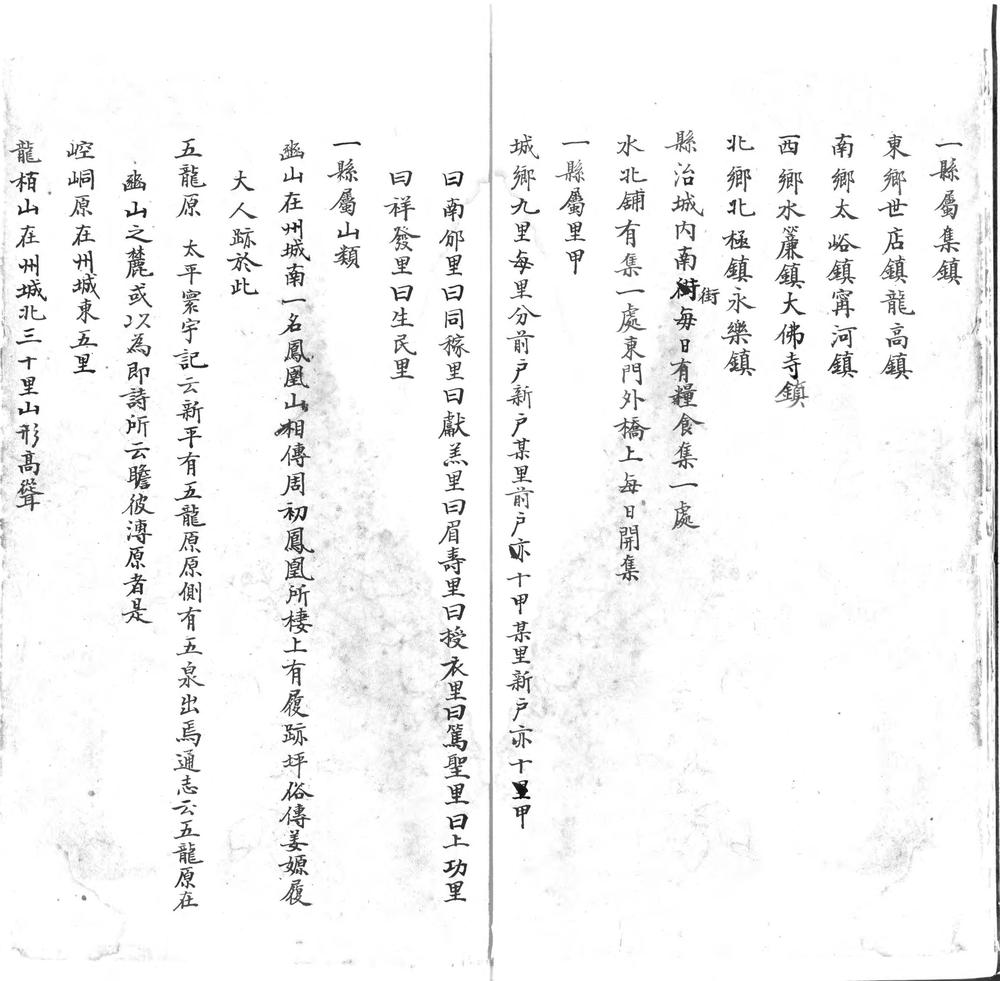 一縣屬集鎮
東鄉世店鎮龍高鎮
南鄉太峪鎮寗河鎮
西鄉水簾鎮大佛寺鎮
北鄉北極鎮永樂鎮
縣治城內南街每日有糧食集一處
街
水北舖有集一處東門外橋上每日開集
一縣屬里甲
城鄉九里每里分前戶新戶某里前戶亦十甲某里新戶亦十甲
曰南邠里曰同稼里曰獻羔里曰眉壽里曰授衣里曰篤聖里曰上功里
曰祥發里曰生民里
一縣屬山類
豳山在州城南一名鳳凰山相傳周初鳳凰所棲上有履跡坪俗傳姜嫄履
大人跡於此
五龍原 太平寰宇記云新平有五龍原原側有五泉出焉通志云五龍原在
豳山之麓或以為即詩所云瞻彼溥原者是
崆峒原在州城東五里
龍栢山在州城北三十里山形高聳